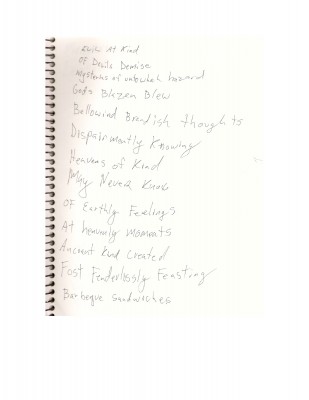 Kwik At Kind
Of Devils Demise
Mysteries of unbowleh hazard
Gods Blazen Blew
Bellowind Brandish thoughts
Dispairmontly Knowing
Heavens of Kind
May Never Know
OF Earthly Feelings
At heavenly moments
Ancient Kind Created
Fost Fenderlossly Feasting
Barbeque Sandwiches